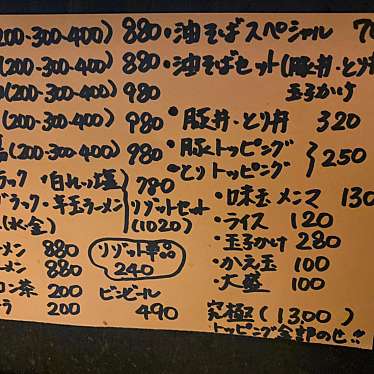 (200-300-400) 880
(200-300-400) 880
(200-300-400) 980
(200-300-400) 980
(200-300-400) 980
ラック・白れっつ塩 780
ブラック・辛玉ラーメン
(水・金)
リゾットセット
(1020)
ーメン 880
ーメン 880
ロン茶 200
ラ 200
リゾット単品
240
ビンビール
490
・油そばスペシャル
・油そばセット(豚丼・とり丼
玉子かけ
・豚丼・とり丼 320
・豚トッピング
・とりトッピング
250
・味玉 メンマ 130
・ライス 120
・玉子かけ 280
・かえ玉 100
・大盛 100
究極(1300)
トッピング全部のせ!!